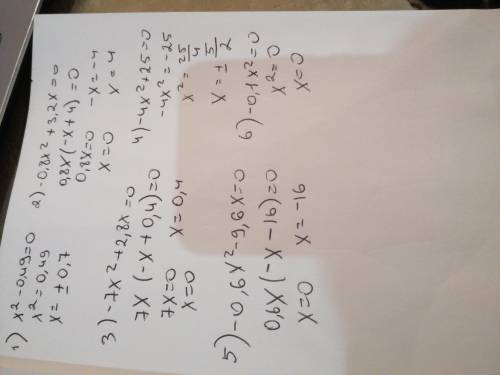 1) x² - 0,49 = 0
x² = 0,49
x = ± 0,7
2) -0,8x² + 3,2x = 0
0,8x(-x + 4) = 0
0,8x = 0 -x = -4
x = 0 x = 4
3) -7x² + 2,8x = 0
7x(-x + 0,4) = 0
7x = 0 x = 0,4
x = 0
4) -4x² + 25 = 0
-4x² = -25
x² = 25/4
x = ± 5/2
5) -0,6x² - 9,6x = 0
0,6x(-x - 16) = 0
x = 0 x = -16
6) -0,1x² = 0
x² = 0
x = 0